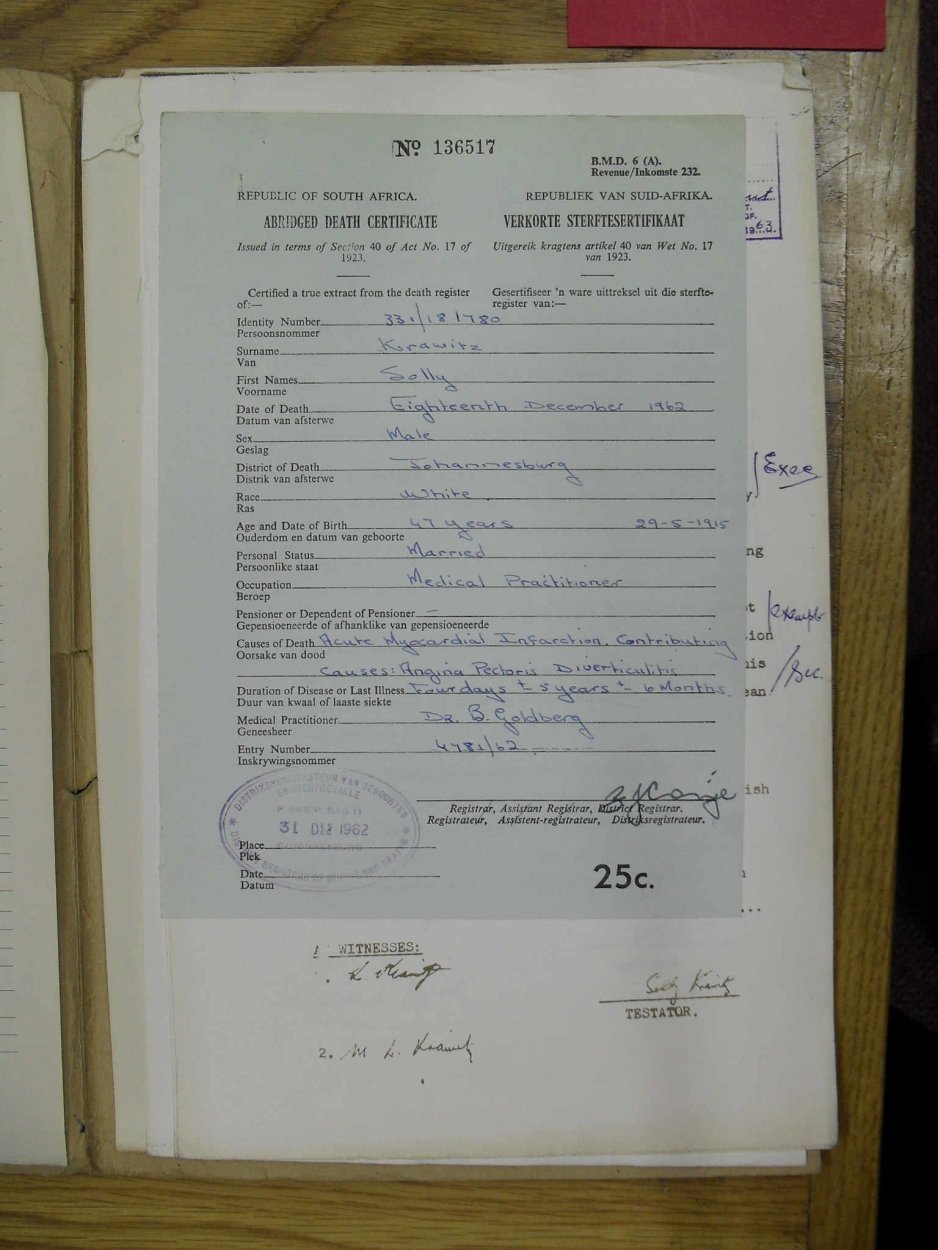 No 136517
B.M.D. 6 (A).
Revenue/Inkomste 232.
REPUBLIC OF SOUTH AFRICA. REPUBLIEK VAN SUID-AFRIKA.
ABRIDGED DEATH CERTIFICATE VERKORTE STERFTESERTIFIKAAT
Issued in terms of Section 40 of Act No. 17 of Uitgereik kragtens artikel 40 van Wet No. 17
1923. van 1923.
Certified a true extract from the death register Gesertifiseer 'n ware uittreksel uit die sterfte-
of:— register van:—
Identity Number 331/181780
Persoonsnommer
Surname Krawitz
Van
First Names Solly
Voorname
Date of Death Eighteenth December 1962
Datum van afsterwe
Sex Male
Geslag
District of Death Johannesburg
Distrik van afsterwe
Race White
Ras
Age and Date of Birth 47 years 29-5-1915
Ouderdom en datum van geboorte
Personal Status Married
Persoonlike staat
Occupation Medical Practitioner
Beroep
Pensioner or Dependent of Pensioner –
Gepensioeneerde of afhanklike van gepensioeneerde
Causes of Death Acute Myocardial Infarction. Contributing
Oorsake van dood
Causes: Angina Pectoris Diverticulitis
Duration of Disease or Last Illness Four days ± 5 years ± 6 Months.
Duur van kwaal of laaste siekte
Medical Practitioner Dr. B. Goldberg
Geneesheer
Entry Number 4781/62
Inskrywingsnommer
Registrar, Assistant Registrar, District Registrar.
Registrateur, Assistent-registrateur, Distriksregistrateur.
DISTRIKSREGISTRATEUR VAN GEBOORTES
EN STERFGEVALLE
31 DEC 1962
JOHANNESBURG
Place
Plek
Date
Datum
25c.
Exec
ng
exempt
ion
his
ean
Sec.
ish
WITNESSES:
Solly Krawitz
TESTATOR.
2. M. L. Krawitz